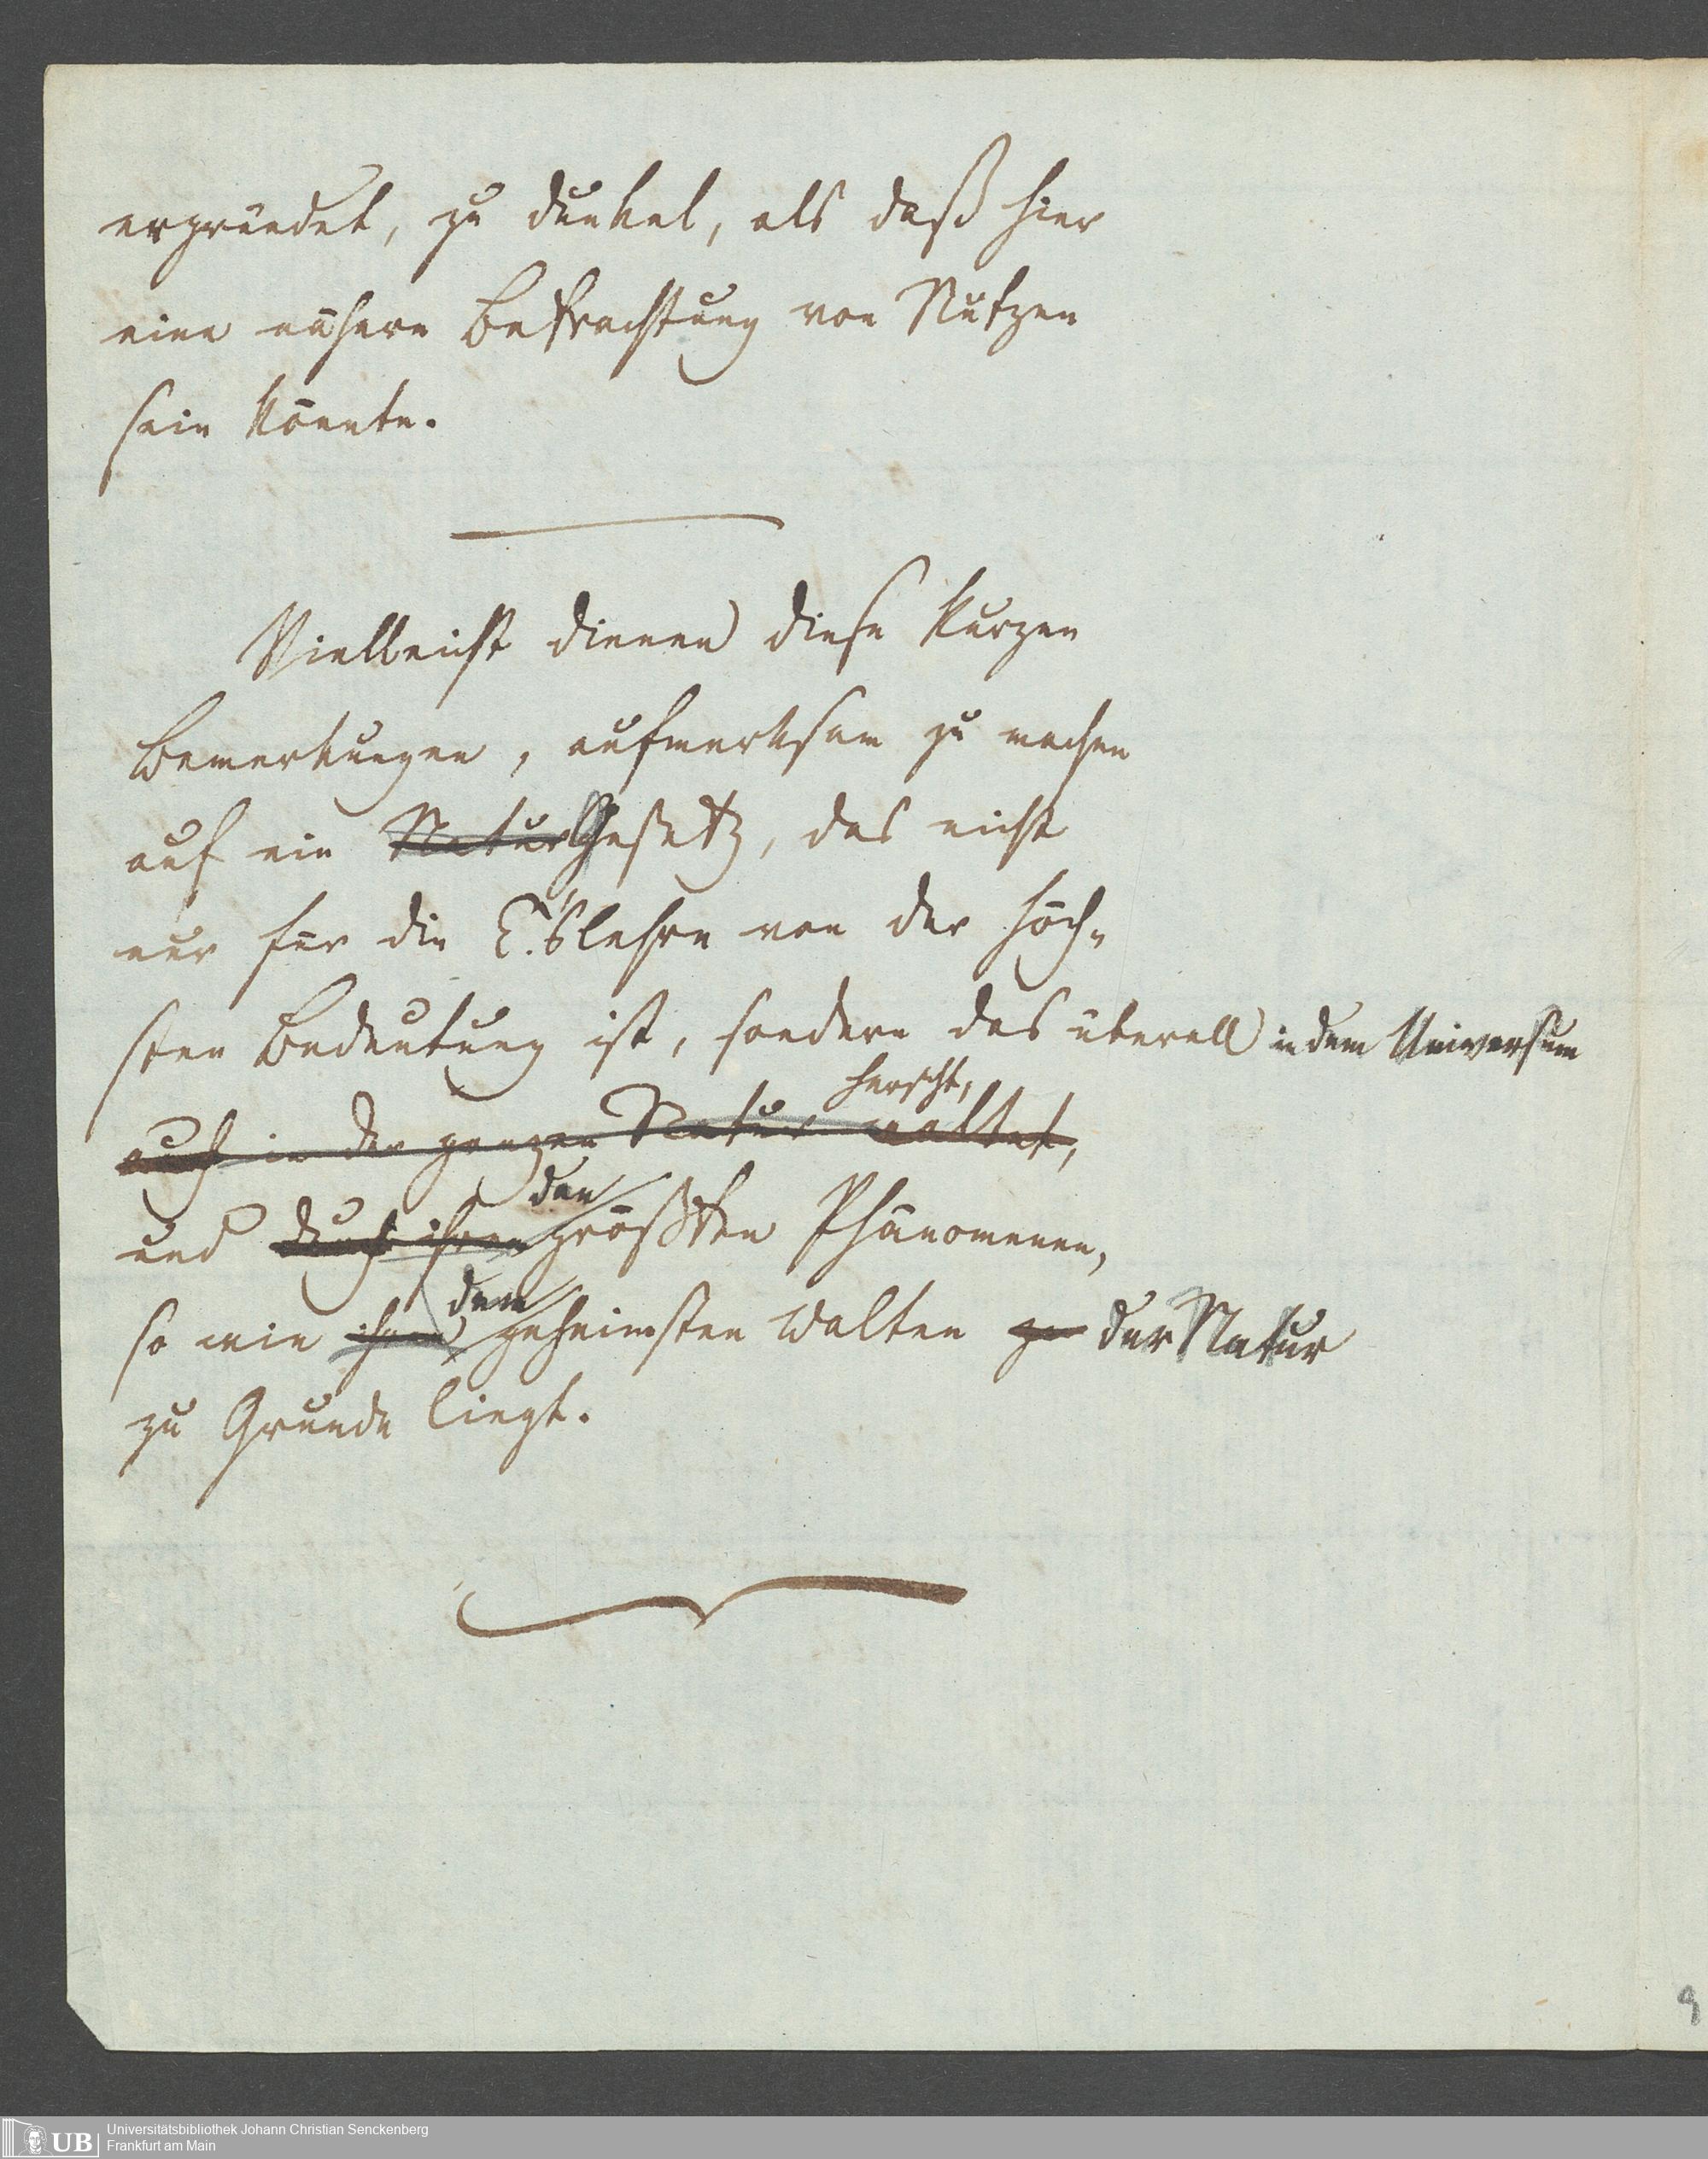 ergründet, zu dunkel, als daß hier
eine nähere Betrachtung von Nutzen
sein könnte.
Vielleicht dienen diese kurzen
Bemerkungen, aufmerksam zu machen
auf ein Natur Gesetz, das nicht
nur für die E.'slehre von der höch-
sten Bedeutung ist, sondern das überall in dem Universum
herrscht,
auch in der ganzen Natur waltet,
den
und durch ihren größten Phänomenen,
dem
so wie ihrem geheimsten Walten zu der Natur
zu Grunde liegt.
9
UB Universitätsbibliothek Johann Christian Senckenberg
Frankfurt am Main